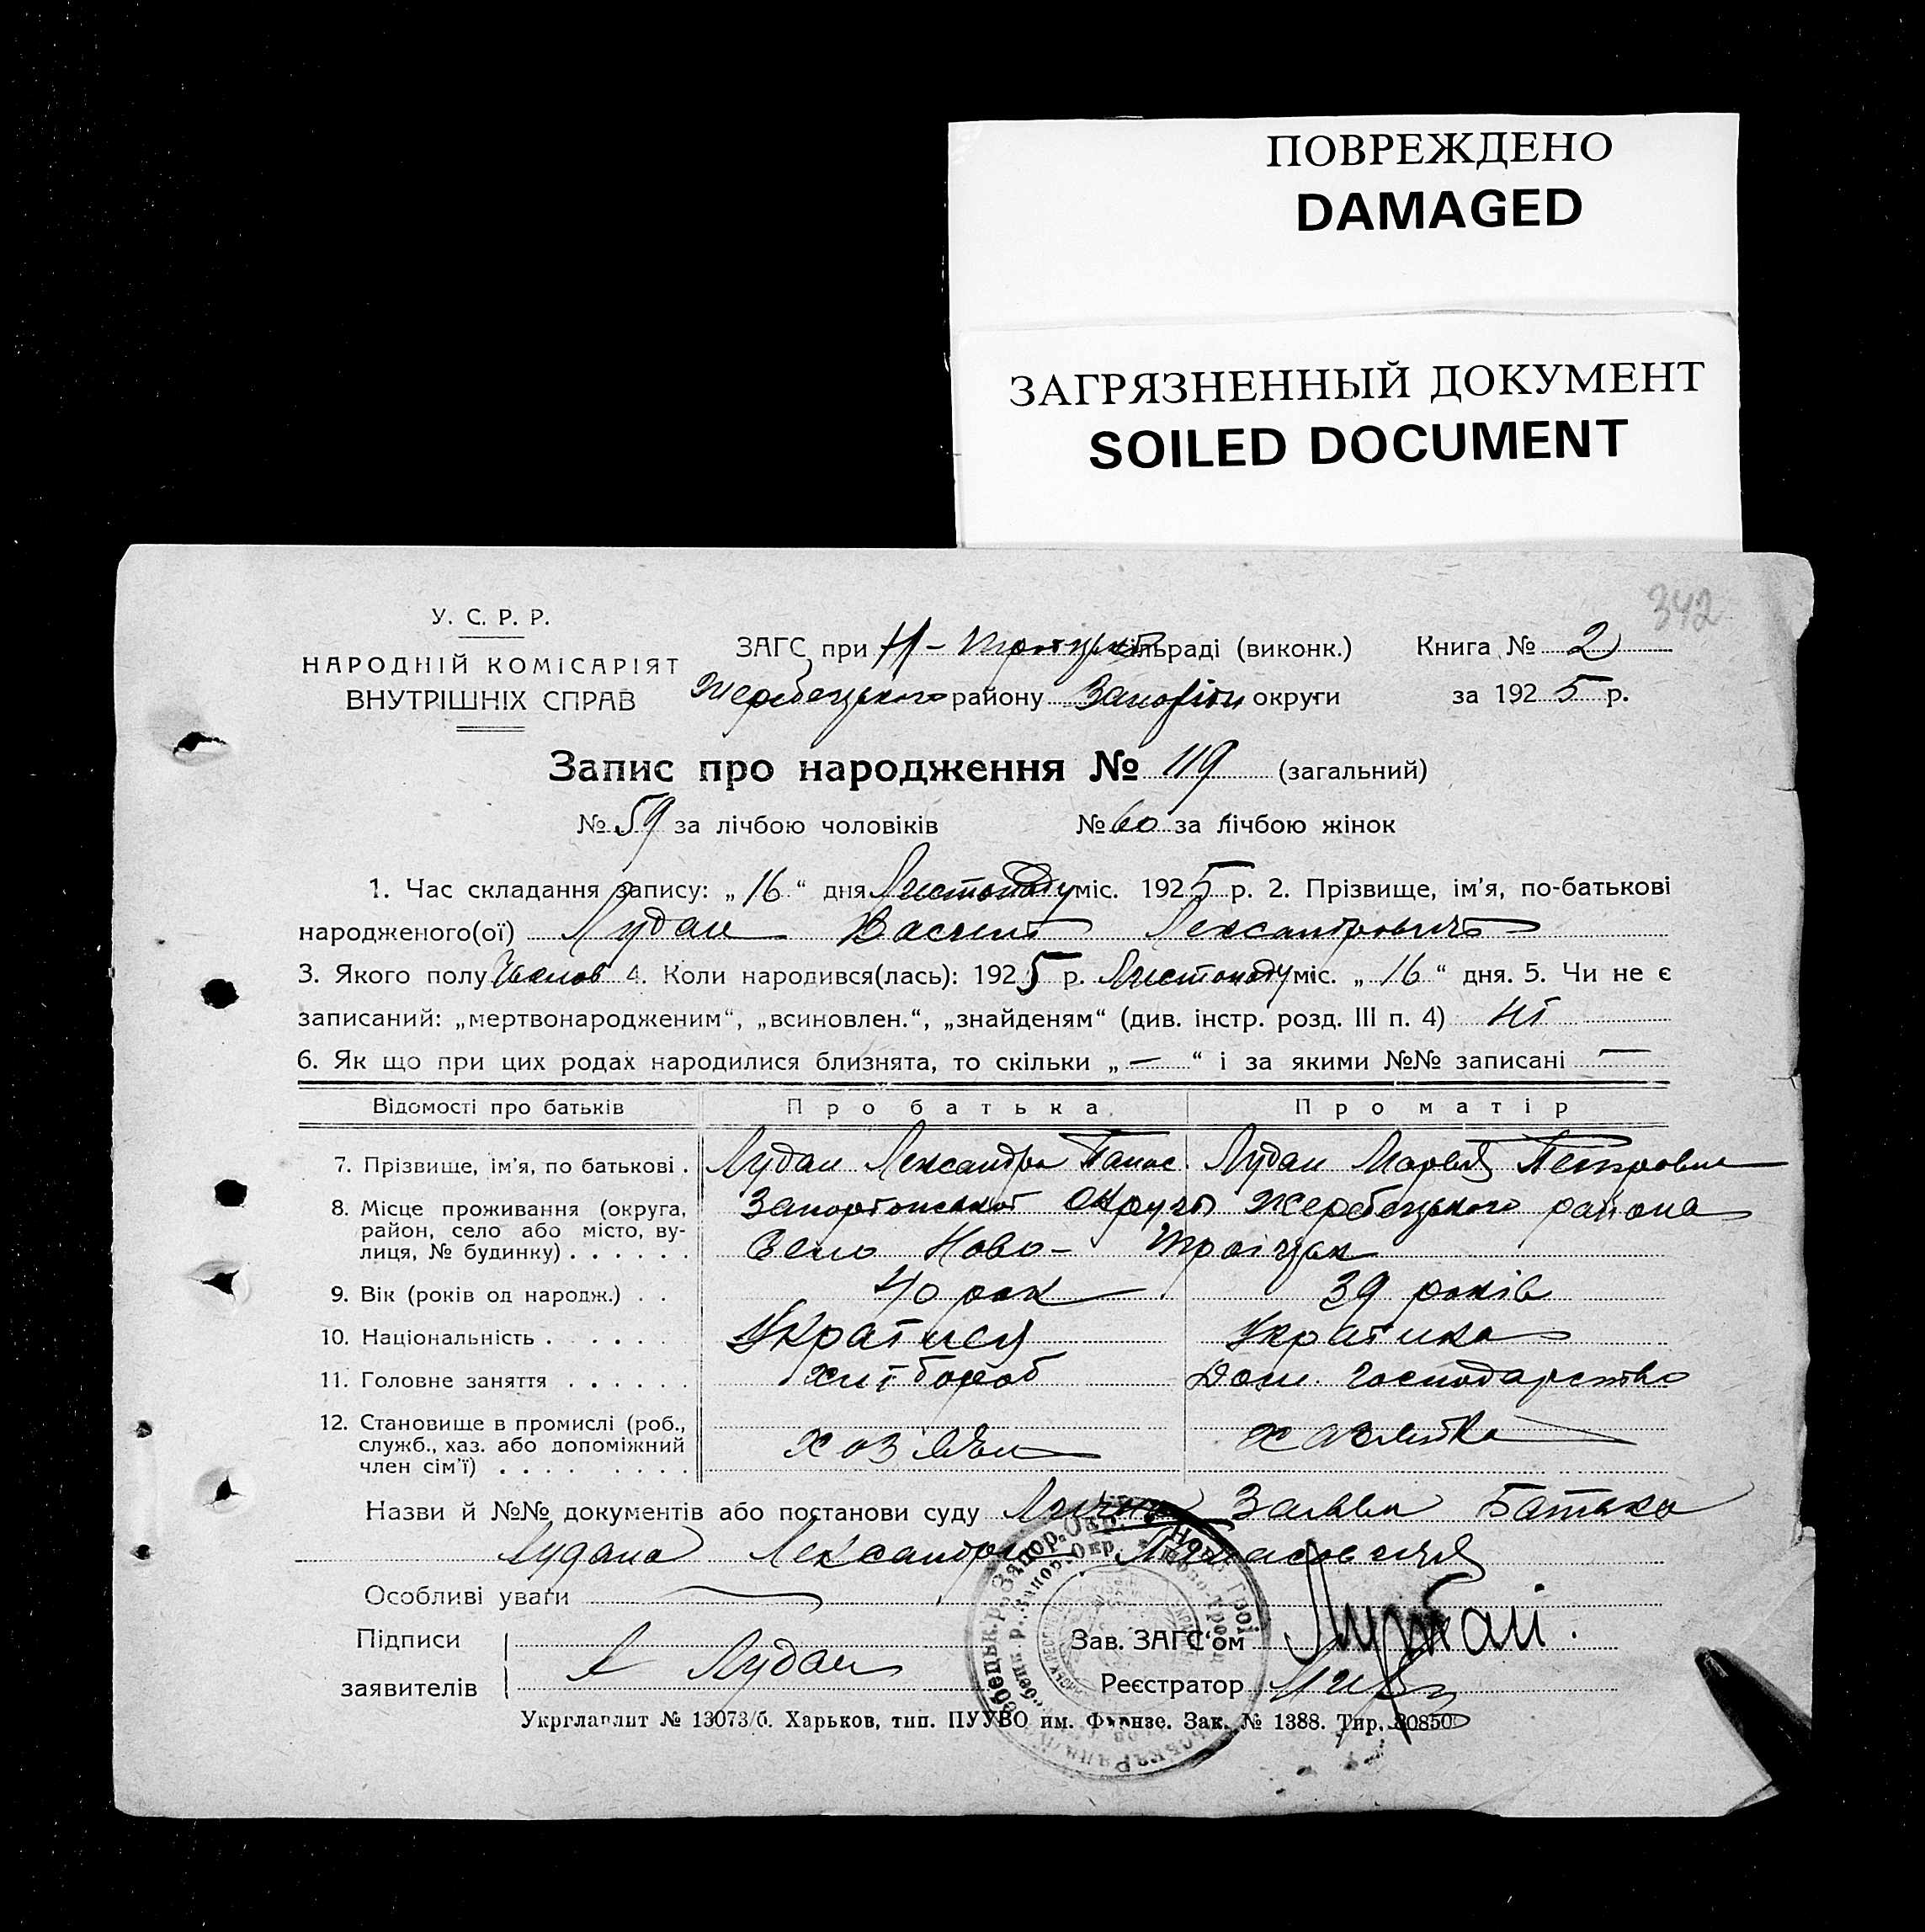 ПОВРЕЖДЕНО
DAMAGED
ЗАГРЯЗНЕННЫЙ ДОКУМЕНТ
SOILED DOCUMENT
342
У. С. Р. Р.
НАРОДНІЙ КОМІСАРІЯТ
ВНУТРІШНІХ СПРАВ
ЗАГС при Н-Троїцькій сільраді (виконк.) Книга № 2
Жеребецького району Запоріж округи за 1925 р.
Запис про народження № 119 (загальний)
№ 59 за лічбою чоловіків № 60 за лічбою жінок
1. Час складання запису: „16“ дня Листопаду міс. 1925 р. 2. Прізвище, ім'я, по-батькові
народженого(ої) Лудан Василь Лександрович
3. Якого полу Чолов 4. Коли народився(лась): 1925 р. Листопаду міс. „16“ дня. 5. Чи не є
записаний: „мертвонародженим“, „всиновлен.“, „знайденям“ (див. інстр. розд. III п. 4) ні
6. Як що при цих родах народилися близнята, то скільки „—“ і за якими №№ записані —
Відомості про батьків Про батька Про матір
7. Прізвище, ім'я, по батькові . Лудан Лександра Панас. Лудан Марья Петровна
8. Місце проживання (округа, район, село або місто, вулиця, № будинку) . . . . . . Запорожської округи Жеребецького района
Село Ново-Троїцьк
9. Вік (років од народж.) . . 40 рок 39 років
10. Національність . . . . . Українец Українка
11. Головне заняття . . . . . . Хлібороб Дом. господарство
12. Становище в промислі (роб., служб., хаз. або допоміжний член сім'ї) . . . . . . . . Хозяїн Хазяйка
Назви й №№ документів або постанови суду Лична Заява Батька
Лудана Лександра Панасовича
Особливі уваги
Підписи заявителів А Лудан
Зав. ЗАГС'ом
Реєстратор
Укрглавлит № 13073/б. Харьков, тип. ПУУВО им. Фрунзе. Зак. № 1388. Тир. 80850